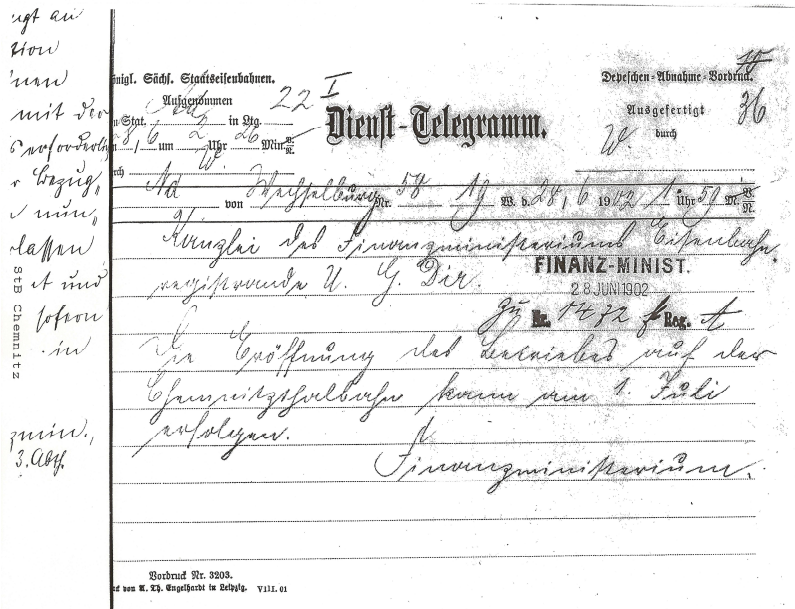 ngt an
tion
nen
mit der
erforderlich
r Bezug„
nun„
lassen
et und
sofern
in
zmin.,
3. Abth.
StB Chemnitz
önigl. Sächs. Staatseisenbahnen.
Depeschen-Abnahme-Vordruck.
15
Aufgenommen
22 I
Dienst-Telegramm.
Ausgefertigt
36
n Stat. in Ltg.
W. durch
8/6 um 2 Uhr 26 Min. V. N.
rch W.
Ad von Wechselburg Nr. 58 19 W. d. 28/6 1902 1 Uhr 59 M. V. N.
Kanzlei des Finanzministeriums Eisenbahn-
registrande U. G. Dir.
FINANZ-MINIST.
28 JUNI 1902
Zu Nr. 1472 Reg. A
Die Eröffnung des Betriebes auf der
Chemnitzthalbahn kann am 1. Juli
erfolgen.
Finanzministerium.
Vordruck Nr. 3203.
ck von A. Th. Engelhardt in Leipzig. VIII. 01